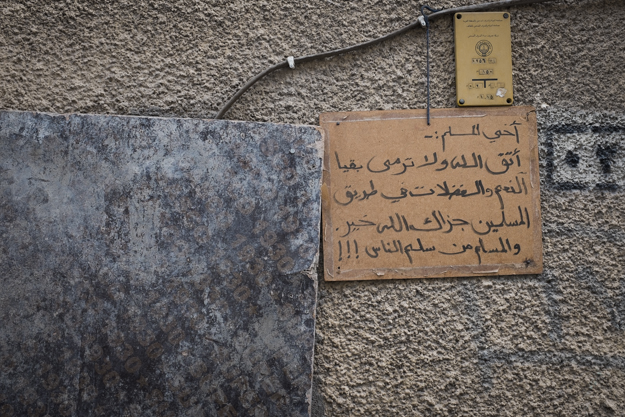 أخي المسلم :ـ
أتق الله ولا ترمى بقيا
النعم والفضلات في طريق
المسلمين جزاك الله خير.
والمسلم من سلم الناس !!!